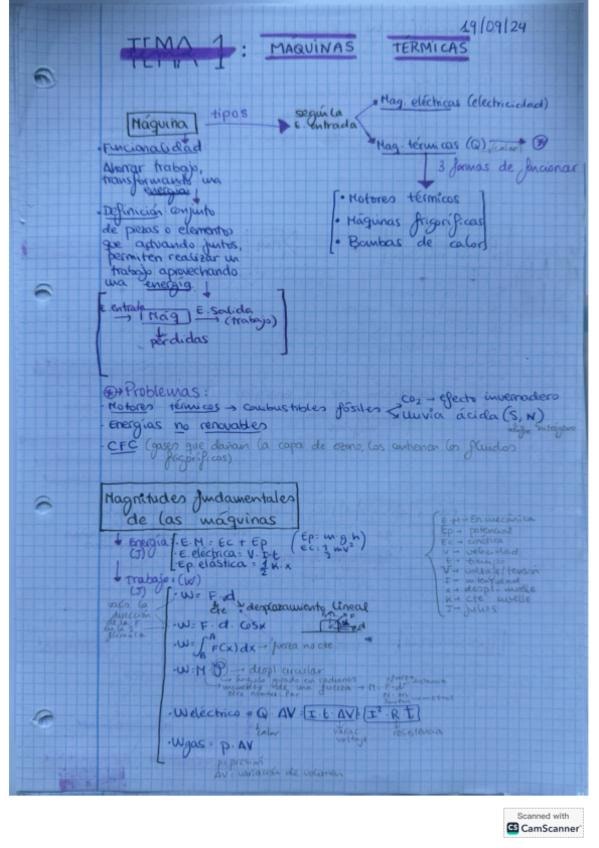 19/09/24
TEMA 1: MÁQUINAS TÉRMICAS
Máquina tipos según la E. entrada
• Maq. eléctricas (electricidad)
• Maq. térmicas (Q) calor
3 formas de funcionar
• Motores térmicos
• Máquinas frigoríficas
• Bombas de calor
• Funcionalidad
Ahorrar trabajo,
transformando una
energía
• Definición conjunto
de piezas o elementos
que actuando juntos,
permiten realizar un
trabajo aprovechando
una energía
E. entrada → Máq → E. Salida
(trabajo)
pérdidas
→ Problemas:
- Motores térmicos → combustibles fósiles
CO2 → efecto invernadero
lluvia ácida (S, N)
- Energías no renovables
- CFC (gases que dañan la capa de ozono, los contienen los fluidos
frigoríficos)
Magnitudes fundamentales
de las máquinas
Energía (J)
· E.M = Ec + Ep
· E. eléctrica = V·I·t
· Ep. elástica = 1/2 K·x
(Ep = m g h
E.M → En. mecánica
Ep → potencial
Ec → cinética
V → velocidad
t → tiempo
V → voltaje/tensión
I → intensidad
x → despl. muelle
K → cte muelle
J → julios
Trabajo: (W)
(J)
· W = F · d
cte desplazamiento lineal
· W = F · d · cosα
· W = ∫ F(x) dx → fuerza no cte
· W = M · → despl circular
ángulo girado en radianes
· W eléctrico = Q · ΔV = I · t · ΔV = I² · R · t
voltaje
resistencia
· W gas = p · ΔV
p: presión
ΔV: variación de volumen
Scanned with
CS CamScanner